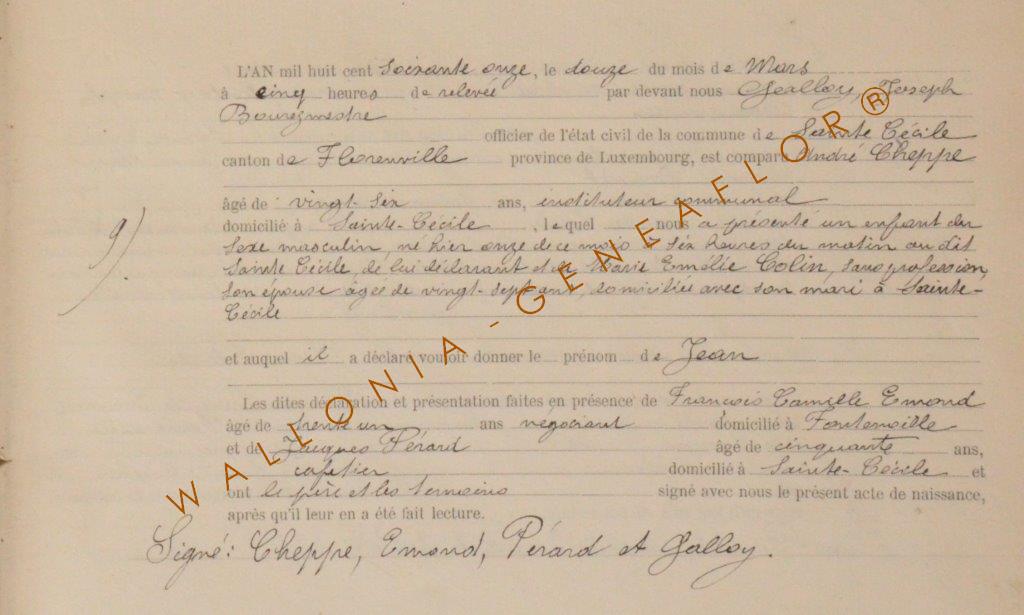 L'AN mil huit cent soixante onze, le douze du mois de Mars
à cinq heures de relevée par devant nous Galloy, Joseph
Bourgmestre
officier de l'état civil de la commune de Sainte Cécile
canton de Florenville province de Luxembourg, est comparu André Cheppe
âgé de vingt-six ans, instituteur communal
domicilié à Sainte-Cécile, lequel nous a présenté un enfant du
sexe masculin, né hier onze de ce mois à six heures du matin au dit
9)
Sainte Cécile, de lui déclarant et de Marie Emélie Colin, sans profession,
son épouse âgée de vingt-sept ans, domiciliée avec son mari à Sainte-
Cécile
et auquel il a déclaré vouloir donner le prénom de Jean
Les dites déclaration et présentation faites en présence de François Camille Emond
âgé de trente un ans négociant domicilié à Fontenoille
et de Jacques Pérard âgé de cinquante ans,
cafetier domicilié à Sainte-Cécile et
ont le père et les temoins signé avec nous le présent acte de naissance,
après qu'il leur en a été fait lecture.
Signé: Cheppe, Emond, Pérard et Galloy.
WALLONIA - GENEAFLOR®